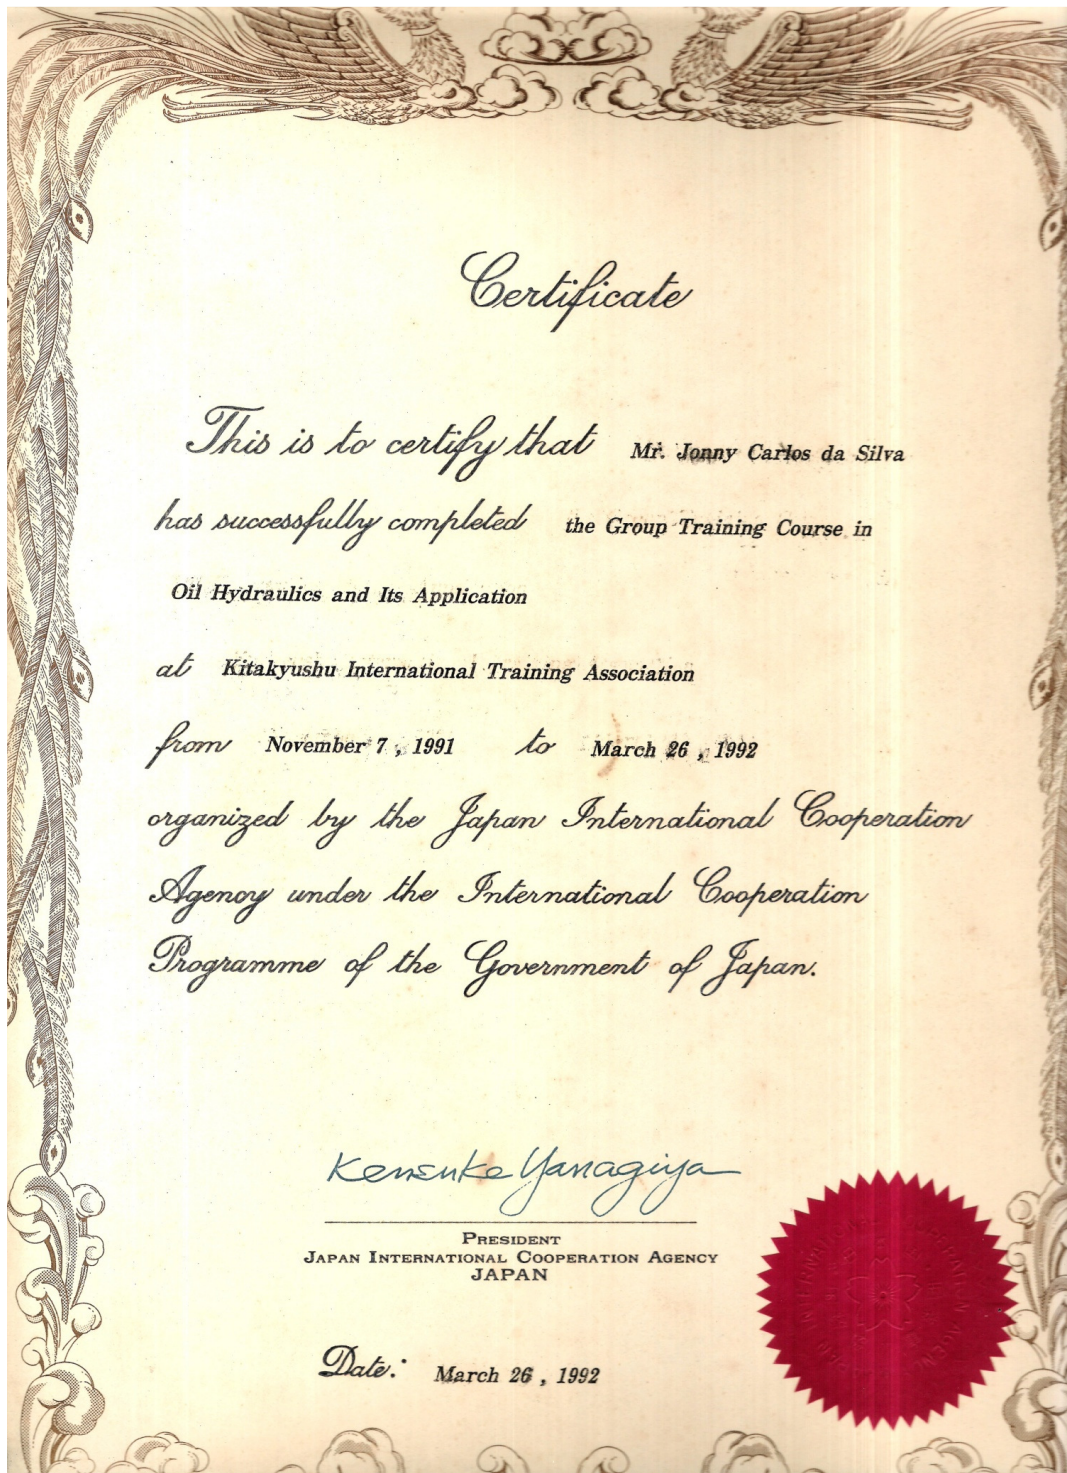 Certificate
This is to certify that Mr. Jonny Carlos da Silva
has successfully completed the Group Training Course in
Oil Hydraulics and Its Application
at Kitakyushu International Training Association
from November 7, 1991 to March 26, 1992
organized by the Japan International Cooperation
Agency under the International Cooperation
Programme of the Government of Japan.
Kensuke Yanagiya
PRESIDENT
JAPAN INTERNATIONAL COOPERATION AGENCY
JAPAN
Date: March 26, 1992